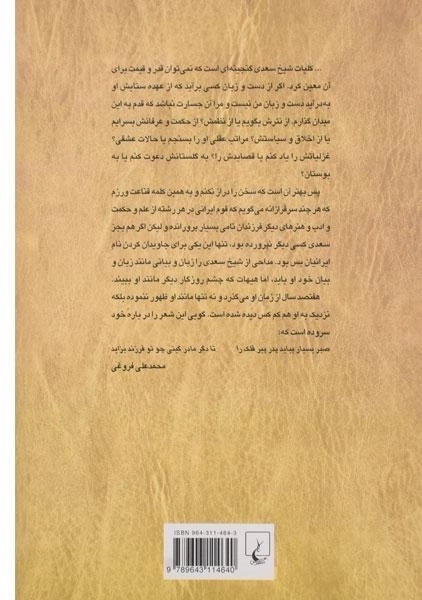 ... کلیات شیخ سعدی گنجینه‌ای است که نمی‌توان قدر و قیمت برای
آن معین کرد. اگر از دست و زبان کسی برآید که از عهده ستایش او
به‌درآید دست و زبان من نیست و مرا آن جسارت نباشد که قدم به این
میدان گذارم. از نثرش بگویم یا از نظمش؟ از حکمت و عرفانش بسرایم
یا از اخلاق و سیاستش؟ مراتب عقلی او را بسنجم یا حالات عشقی؟
غزلیاتش را یاد کنم یا قصایدش را؟ به گلستانش دعوت کنم یا به
بوستان؟
پس بهتر آن است که سخن را دراز نکنم و به همین کلمه قناعت ورزم
که هر چند سرفرازانه می‌گویم که قوم ایرانی در هر رشته از علم و حکمت
و ادب و هنرهای دیگر فرزندان نامی بسیار پرورانده و لیکن اگر هم بجز
سعدی کسی دیگر نپرورده بود، تنها این یکی برای جاویدان کردن نام
ایرانیان بس بود. مداحی از شیخ سعدی را زبان و بیانی مانند زبان و
بیان خود او باید، اما هیهات که چشم روزگار دیگر مانند او ببیند.
هفتصد سال از زمان او می‌گذرد و نه تنها مانند او ظهور ننموده بلکه
نزدیک به او هم کم کس دیده شده است. گویی این شعر را در باره خود
سروده است که:
صبر بسیار بباید پدر پیر فلک را تا دگر مادر گیتی چو تو فرزند بزاید
محمدعلی فروغی
ISBN 964-311-464-3
9 789643 114640